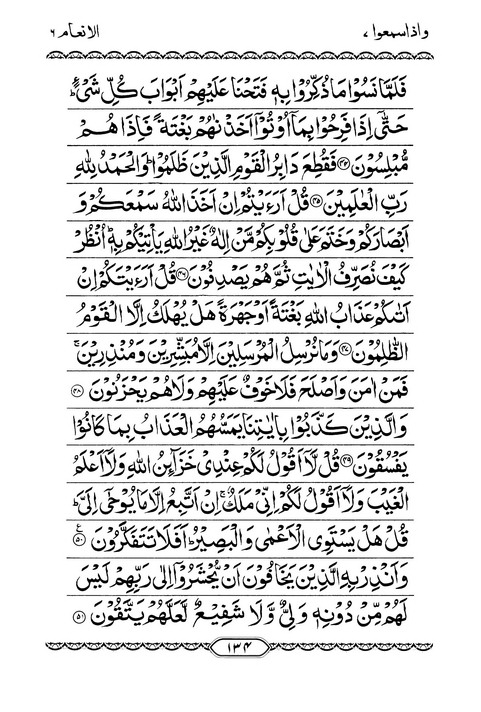 واذاسمعوا ٧
الانعام ٦
فَلَمَّا نَسُوْا مَا ذُكِّرُوْا بِهٖ فَتَحْنَا عَلَيْهِمْ اَبْوَابَ كُلِّ شَىْءٍ ؕ
حَتّٰۤى اِذَا فَرِحُوْا بِمَاۤ اُوْتُوْۤا اَخَذْنٰهُمْ بَغْتَةً فَاِذَا هُمْ
مُّبْلِسُوْنَ ﴿۴۴﴾ فَقُطِعَ دَابِرُ الْقَوْمِ الَّذِيْنَ ظَلَمُوْا ؕ وَالْحَمْدُ لِلّٰهِ
رَبِّ الْعٰلَمِيْنَ ﴿۴۵﴾ قُلْ اَرَءَيْتُمْ اِنْ اَخَذَ اللّٰهُ سَمْعَكُمْ وَ
اَبْصَارَكُمْ وَخَتَمَ عَلٰى قُلُوْبِكُمْ مَّنْ اِلٰهٌ غَيْرُ اللّٰهِ يَاْتِيْكُمْ بِهٖ ؕ اُنْظُرْ
كَيْفَ نُصَرِّفُ الْاٰيٰتِ ثُمَّ هُمْ يَصْدِفُوْنَ ﴿۴۶﴾ قُلْ اَرَءَيْتَكُمْ اِنْ
اَتٰىكُمْ عَذَابُ اللّٰهِ بَغْتَةً اَوْ جَهْرَةً هَلْ يُهْلَكُ اِلَّا الْقَوْمُ
الظّٰلِمُوْنَ ﴿۴۷﴾ وَمَا نُرْسِلُ الْمُرْسَلِيْنَ اِلَّا مُبَشِّرِيْنَ وَمُنْذِرِيْنَ ۚ
فَمَنْ اٰمَنَ وَاَصْلَحَ فَلَا خَوْفٌ عَلَيْهِمْ وَلَا هُمْ يَحْزَنُوْنَ ﴿۴۸﴾
وَالَّذِيْنَ كَذَّبُوْا بِاٰيٰتِنَا يَمَسُّهُمُ الْعَذَابُ بِمَا كَانُوْا
يَفْسُقُوْنَ ﴿۴۹﴾ قُلْ لَّاۤ اَقُوْلُ لَكُمْ عِنْدِىْ خَزَآئِنُ اللّٰهِ وَلَاۤ اَعْلَمُ
الْغَيْبَ وَلَاۤ اَقُوْلُ لَكُمْ اِنِّىْ مَلَكٌ ۚ اِنْ اَتَّبِعُ اِلَّا مَا يُوْحٰۤى اِلَىَّ ؕ
قُلْ هَلْ يَسْتَوِى الْاَعْمٰى وَالْبَصِيْرُ ؕ اَفَلَا تَتَفَكَّرُوْنَ ﴿۵۰﴾ ع
وَاَنْذِرْ بِهِ الَّذِيْنَ يَخَافُوْنَ اَنْ يُّحْشَرُوْۤا اِلٰى رَبِّهِمْ لَيْسَ
لَهُمْ مِّنْ دُوْنِهٖ وَلِىٌّ وَّلَا شَفِيْعٌ لَّعَلَّهُمْ يَتَّقُوْنَ ﴿۵۱﴾
۱۳۴